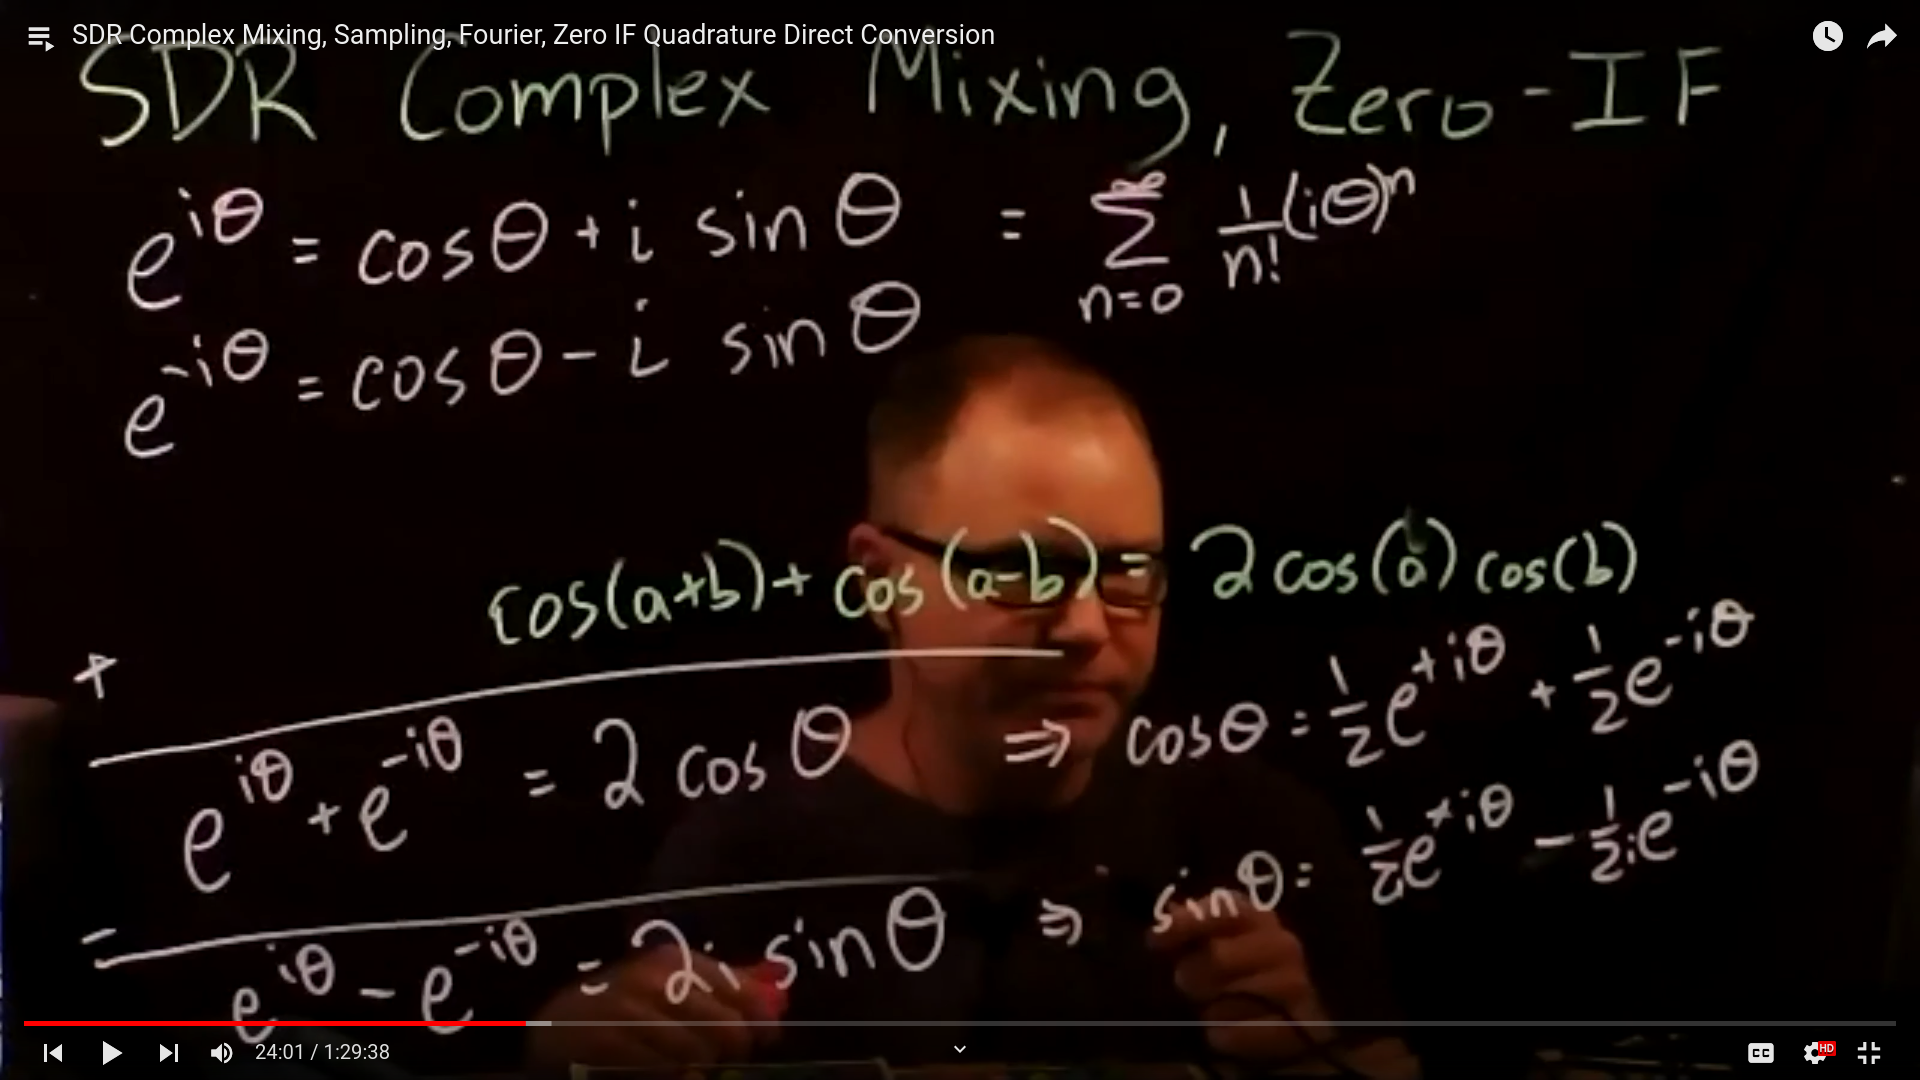 SDR Complex Mixing, Sampling, Fourier, Zero IF Quadrature Direct Conversion
SDR Complex Mixing, Zero-IF
e^{iθ} = cosθ + i sinθ = ∑_{n=0}^{∞} 1/n! (iθ)^n
e^{-iθ} = cosθ - i sinθ
cos(a+b) + cos(a-b) = 2 cos(a) cos(b)
+
e^{iθ} + e^{-iθ} = 2 cosθ ⇒ cosθ = 1/2 e^{+iθ} + 1/2 e^{-iθ}
-
e^{iθ} - e^{-iθ} = 2i sinθ ⇒ sinθ = 1/2i e^{+iθ} - 1/2i e^{-iθ}
24:01 / 1:29:38
CC
HD